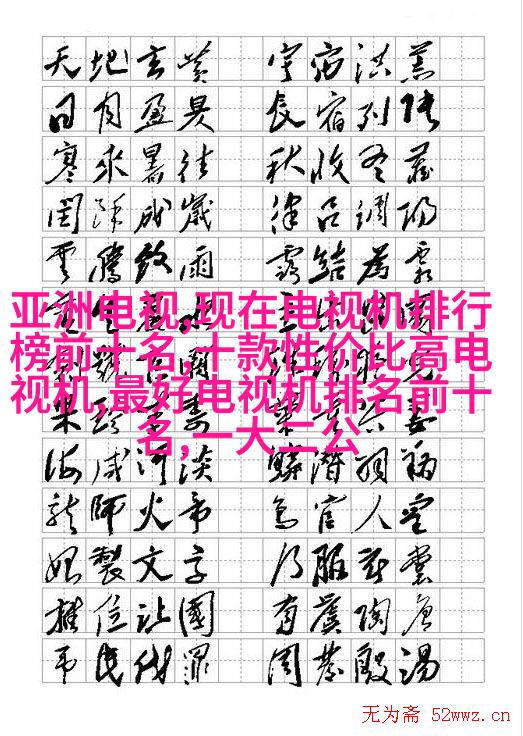 天地玄黄 宇宙洪荒
日月盈昃 辰宿列張
寒來暑往 秋收冬藏
閏餘成歲 律吕調陽
雲騰致雨 露結為霜
亚洲电视,现在电视机排行
榜前十名,十款性价比高电
视机,最好电视机排名前十
名,一大二公
海咸河淡 鱗潛羽翔
龍師火帝 鳥官人皇
始製文字 乃服衣裳
推位让國 有虞陶唐
弔民伐罪 周發殷湯
无为斋 52wwz.cn